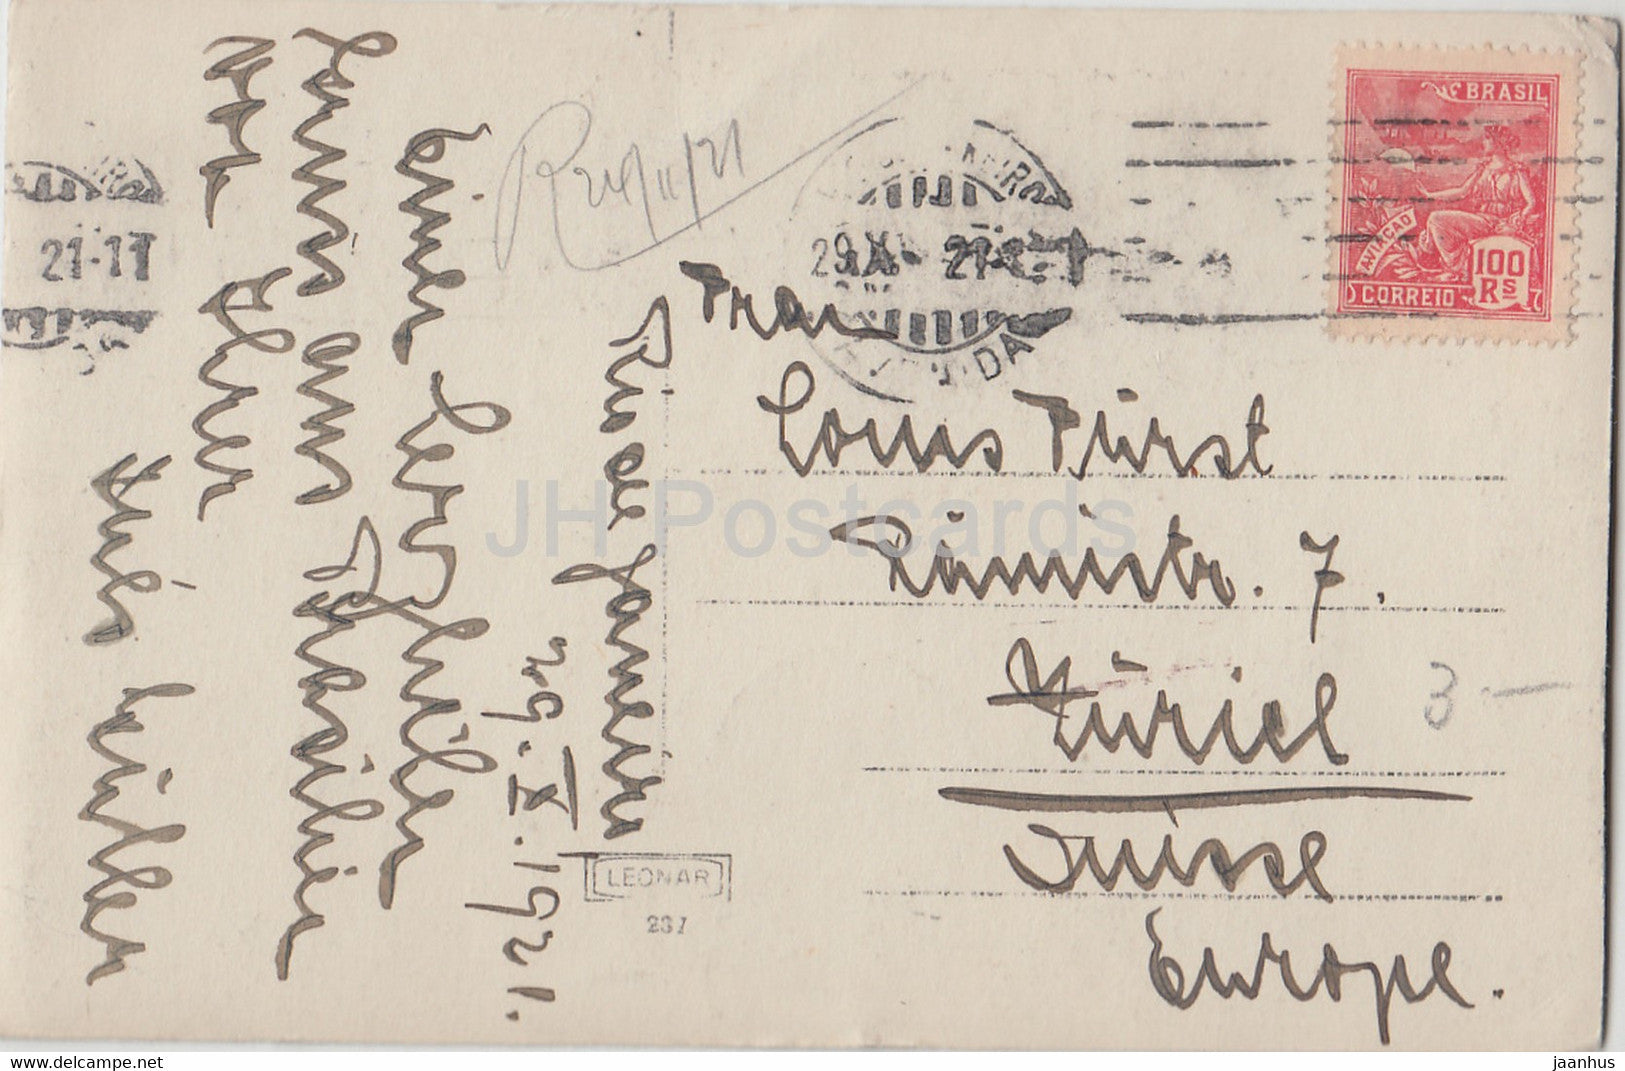 Rio de Janeiro
29.X.1921.
Einen herzlichen
Gruss aus Brasilien
von Ihrer
BRASIL
AVIAÇÃO
100
Rs
CORREIO
21·11
R 24/11/21
29 X
21
Frau
Louis Fürst
Rämistr. 7.
Zürich
Suisse
Europe.
3 –
LEONAR
237
JH Postcards
www.delcampe.net
jaanhus